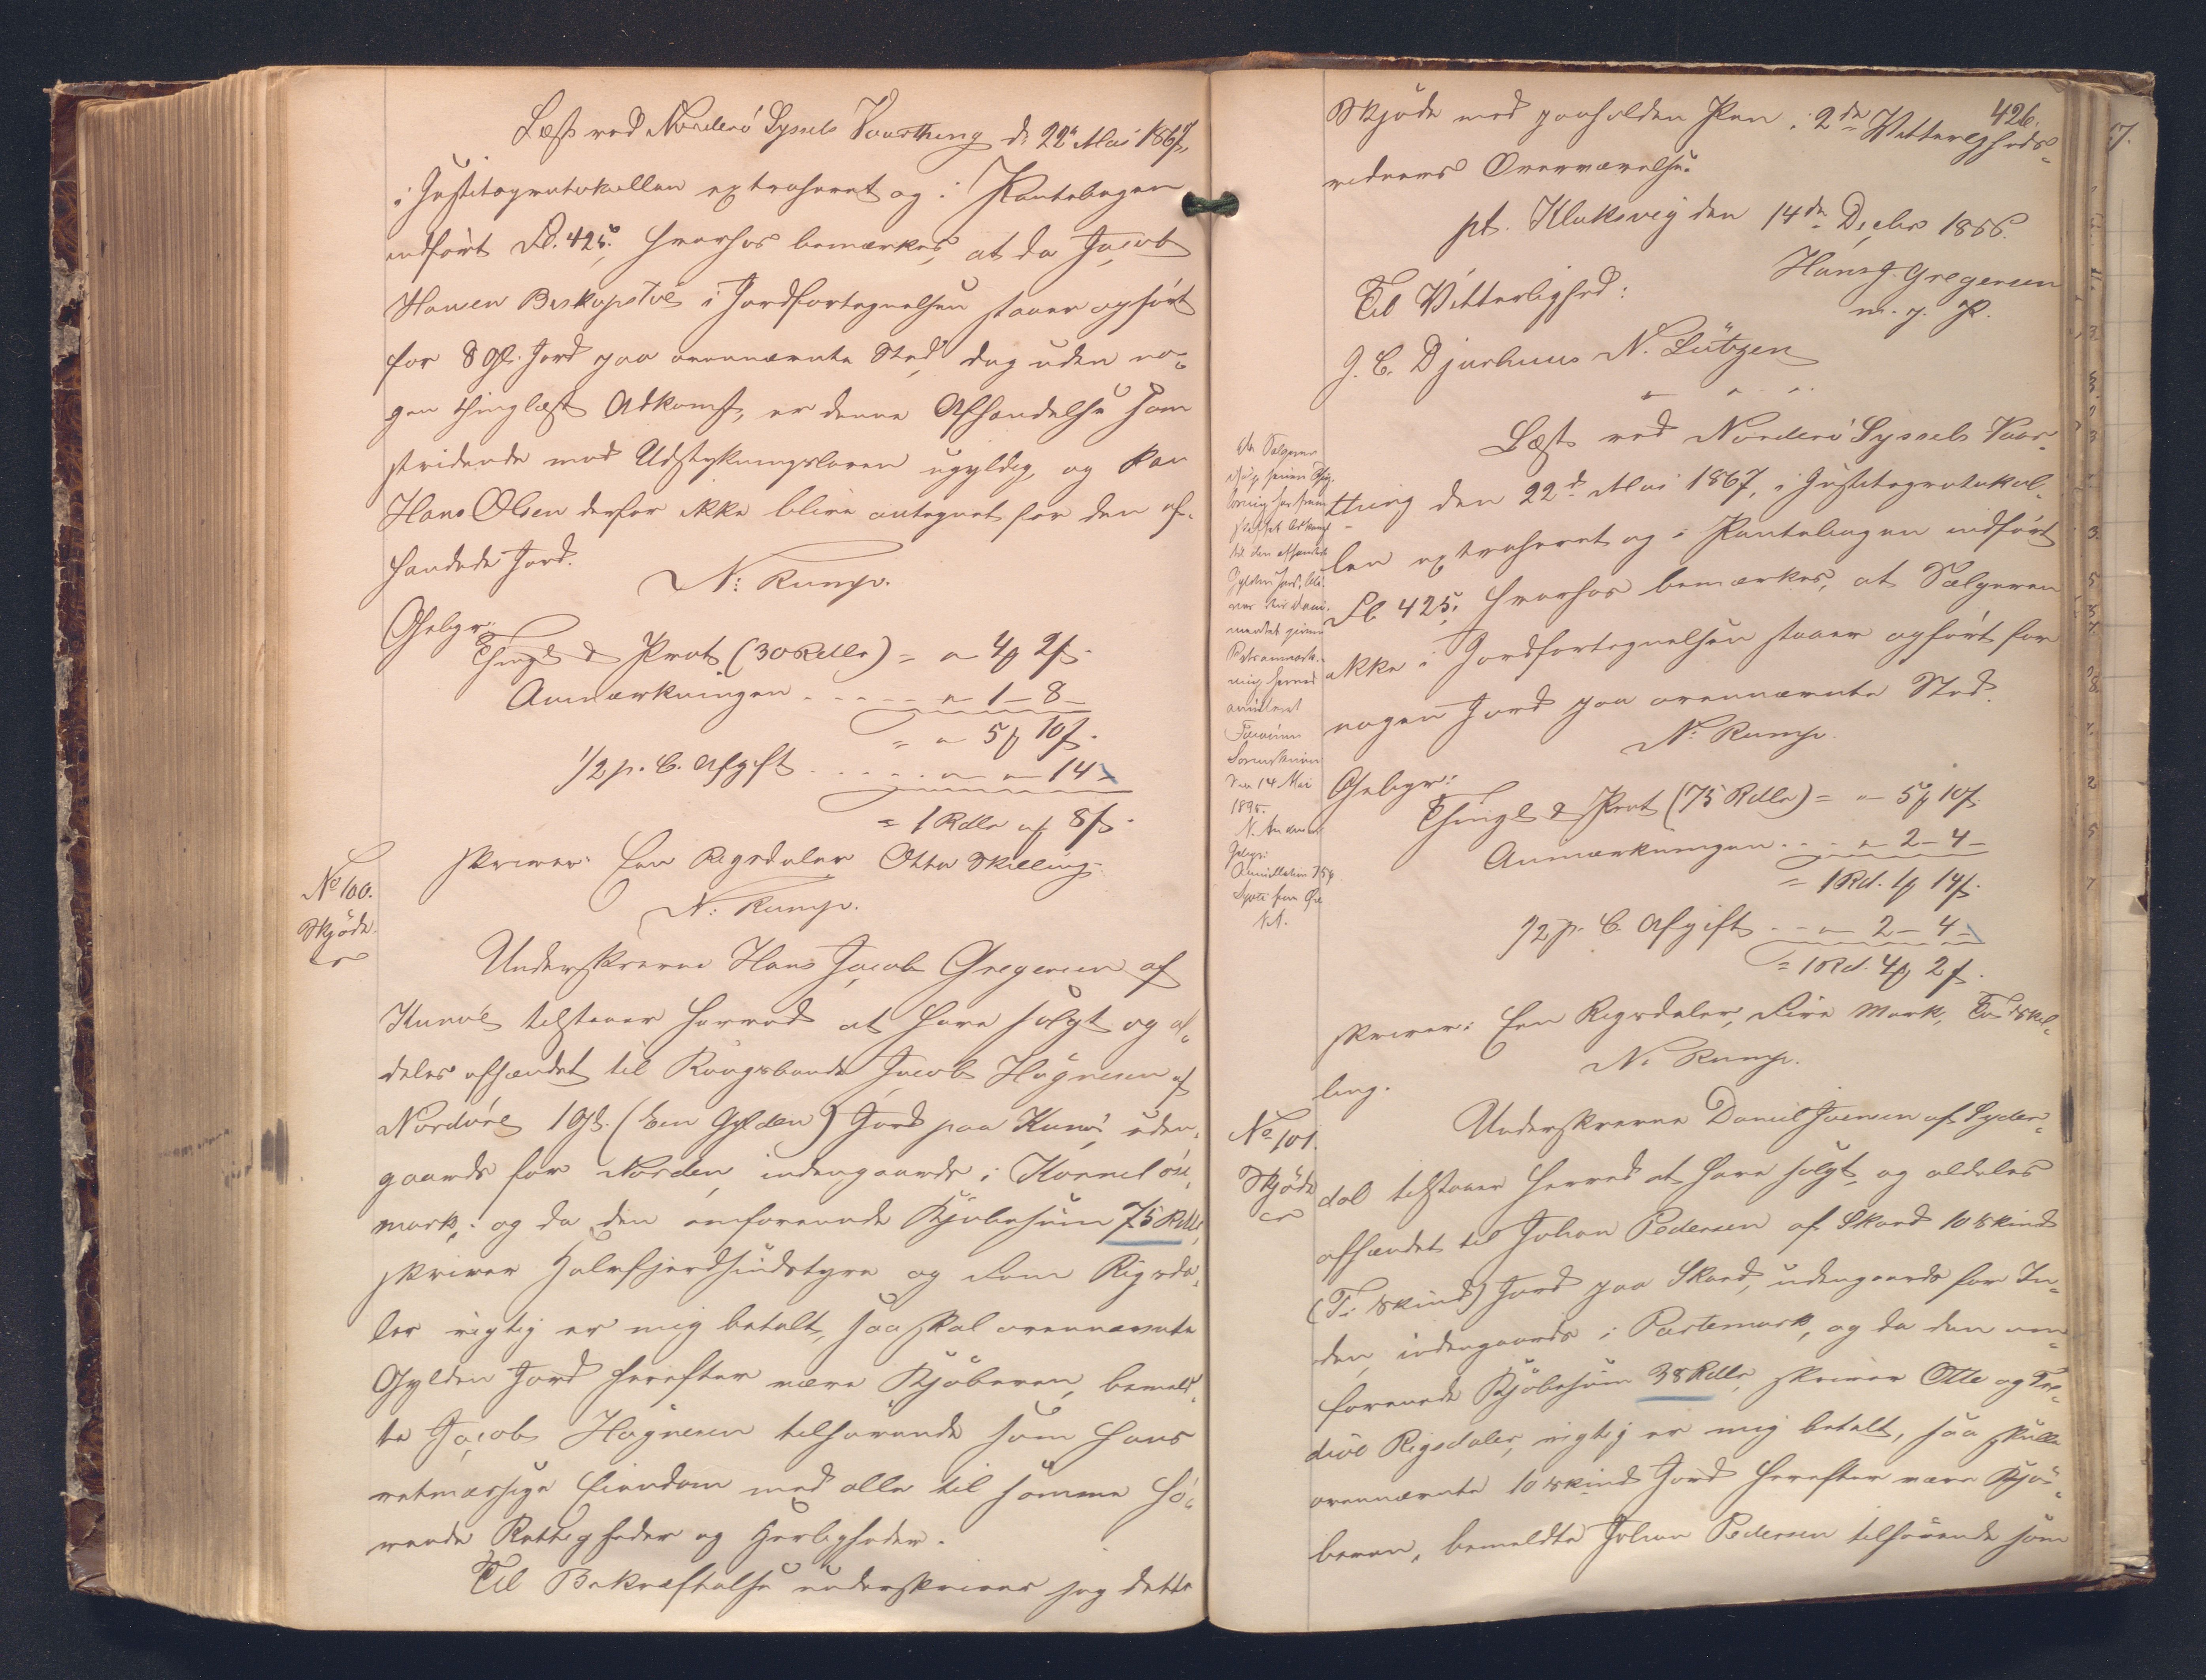 Læst ved Norderø Syssels Vaarthing d. 22de Mai 1867,
i Justitsprotokollen extraheret og i Pantebogen
indført Fol. 425, hvorhos bemærkes, at da Jacob
Hansen Biskopstøe i Jordfortegnelsen staaer opført
for 8 Gl. Jord paa ovennævnte Sted, dog uden no-
gen thinglæst Adkomst, er denne Afhændelse som
stridende mod Udstykningsloven ugyldig, og kan
Hans Olsen derfor ikke blive antegnet for den af-
hændede Jord.
N. Rump.
Gebyr:
Thingl & Prot (30 Rdlr) = " 4 ꝳ 2 ß.
Anmærkningen - - - - - " 1 - 8 -
= " 5 ꝳ 10 ß.
1/2 p. C. Afgift - - - - - " - " - 14 -
= 1 Rdlr " ꝳ 8 ß.
skriver: Een Rigsdaler Otte Skilling.
N. Rump.
No 100.
Skjøde.
Underskrevne Hans Jacob Gregersen af
Kunøe tilstaaer herved at have solgt og al-
deles afhændet til Kongsbonde Jacob Høgnesen af
Nordøre 1 Gl. (Een Gylden) Jord paa Kunø, uden-
gaards for Norden, indengaards i Korneløse-
mark; og da den omforenede Kjøbesum 75 Rdlr,
skriver Halvfjerdsindstyve og Fem Rigsda-
ler rigtig er mig betalt, saa skal ovennævnte
Gylden Jord herefter være Kjøberen, bemeld-
te Jacob Høgnesen tilhørende som hans
retmæssige Eiendom med alle til samme hø-
rende Rettigheder og Herligheder.
Til Bekræftelse underskriver jeg dette
426.
Skjøde med paaholden Pen i 2de Vitterligheds-
vidners Overværelse.
pt. Klaksvig den 14de Decbr 1866.
Hans J. Gregersen
m. p. P.
Til Vitterlighed:
J. C. Djurhuus N. Lützen
Læst ved Norderø Syssels Vaar-
thing den 22d Mai 1867, i Justitsprotokol-
len extraheret og i Pantebogen indført
Fol 425, hvorhos bemærkes, at Sælgeren
ikke i Jordfortegnelsen staaer opført for
nogen Jord paa ovennævnte Sted.
N. Rump.
Da Sælgeren
til den afhændede
Gylden Jord, bli-
ver
ning herved
annulleret
Færøernes
Sorenskriveri
den 14 Mai
1895.
Gebyr:
Gebyr:
Thingl & Prot (75 Rdlr) = " - 5 ꝳ 10 ß.
Anmærkningen - - - " - 2 - 4 -
= 1 Rd. 1 ꝳ 14 ß.
1/2 p. C. Afgift - - " - 2 - 4 -
= 1 Rd. 4 ꝳ 2 ß.
skriver: Een Rigsdaler, Fire Mark, To Skil-
ling.
N. Rump.
No 101.
Skjøde
Underskrevne Daniel Joensen af Syder-
dal tilstaaer herved at have solgt og aldeles
afhændet til Johan Pedersen af Skaard 10 Skind
(Ti Skind) Jord paa Skaard, udengaards for In-
den, indengaards i Partemark, og da den om-
forenede Kjøbesum 38 Rdlr, skriver Otte og Tre-
dive Rigsdaler, rigtig er mig betalt, saa skulle
ovennævnte 10 Skind Jord herefter være Kjø-
beren, bemeldte Johan Pedersen tilhørende som